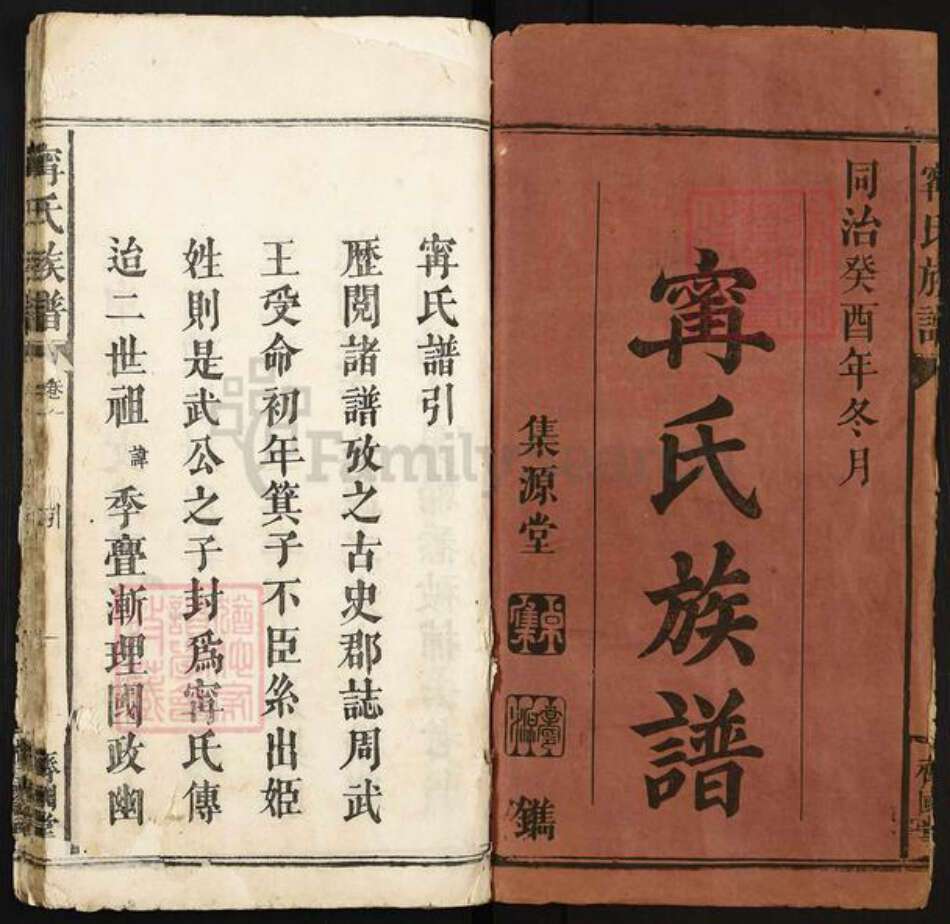 同治癸酉年冬月
甯氏族譜
集源堂
鐫
甯氏譜引
歷閱諸譜攷之古史郡誌周武
王受命初年箕子不臣糸出姬
姓則是武公之子封爲甯氏傳
迨二世祖諱季亹漸理國政幽
甯氏族譜 卷 引 一